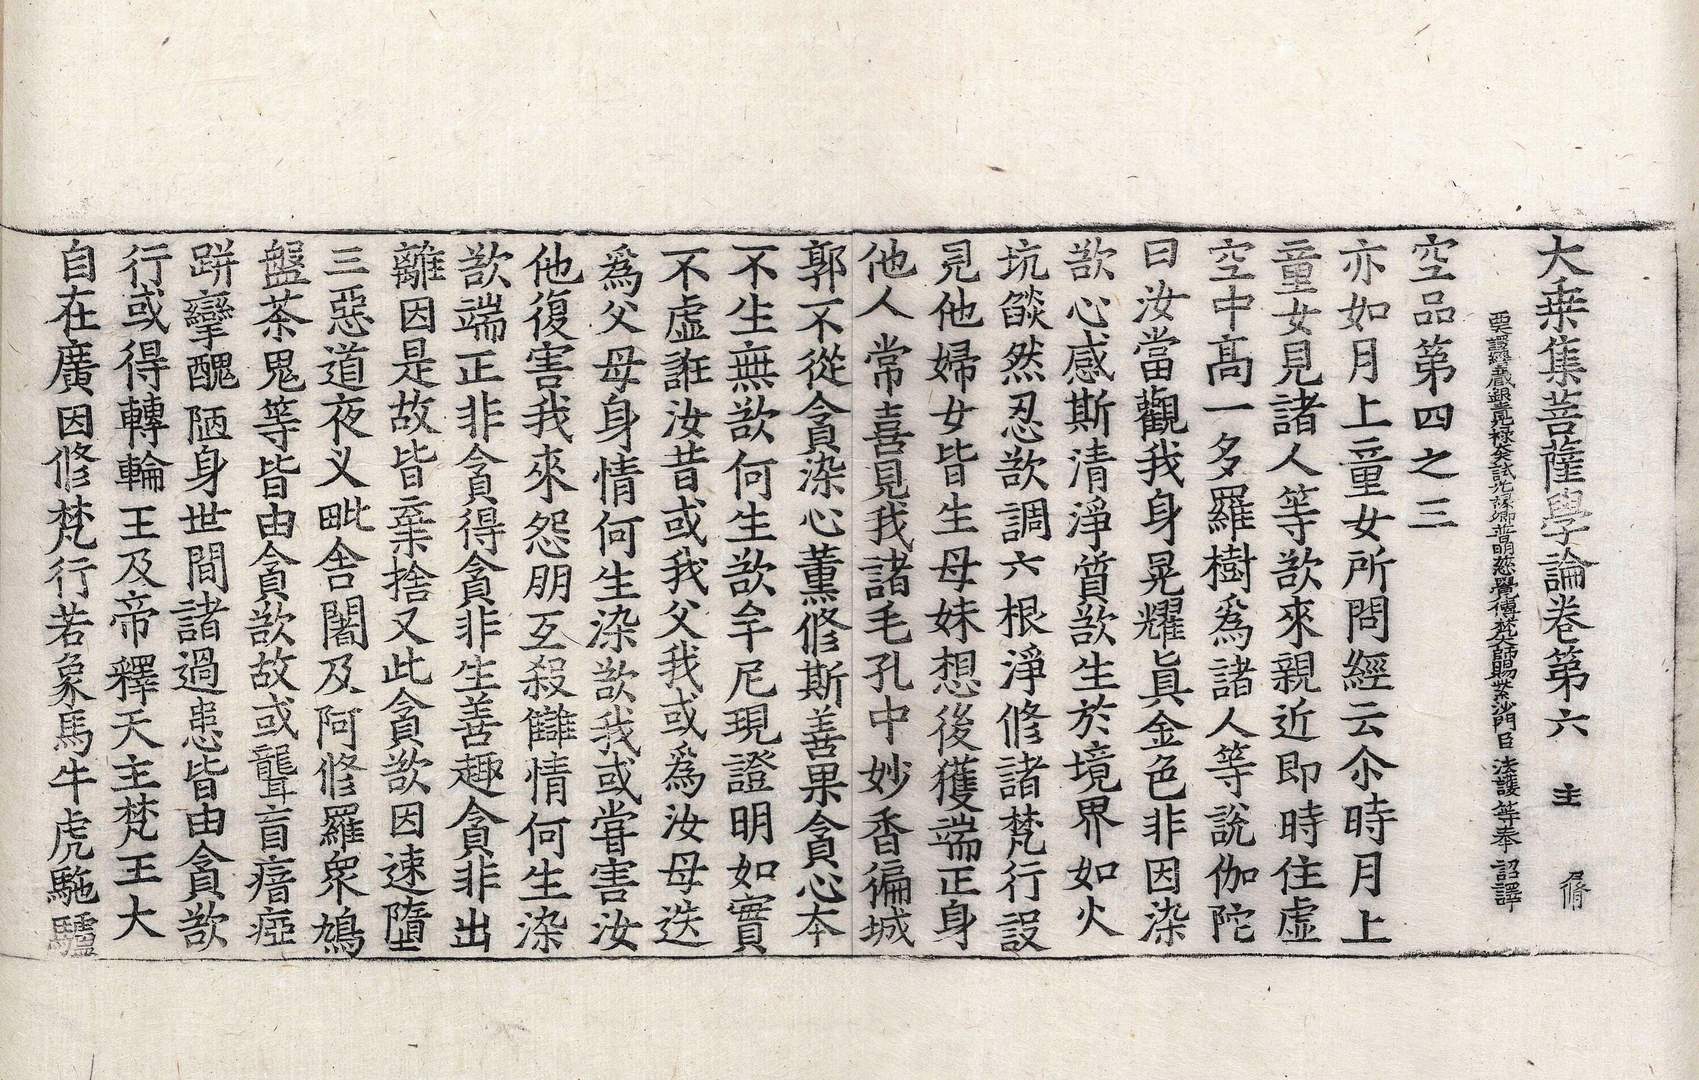 大乗集菩薩學論卷第六　主　脩
西天譯經三藏銀青光祿大夫試光祿卿普明慈覺傳梵大師賜紫沙門臣法護等奉　詔譯
空品第四之三
亦如月上童女所問經云尒時月上
童女見諸人等欲來親近即時住虛
空中髙一多羅樹爲諸人等說伽陀
曰汝當觀我身晃耀眞金色非因染
欲心感斯清淨質欲生於境界如火
坑燄然忍欲調六根淨修諸梵行設
見他婦女皆生母妹想後獲端正身
他人常喜見我諸毛孔中妙香徧城
郭不從貪染心薰修斯善果貪心本
不生無欲何生欲牟尼現證明如實
不虛誑汝昔或我父我或爲汝母迭
爲父母身情何生染欲我或甞害汝
他復害我來怨朋互殺讎情何生染
欲端正非貪得貪非生善趣貪非出
離因是故皆棄捨又此貪欲因速墮
三惡道夜义毗舍闍及阿修羅眾鳩
盤茶鬼等皆由貪欲故或聾盲瘖瘂
跰攣醜陋身世間諸過患皆由貪欲
行或得轉輪王及帝釋天主梵王大
自在廣因修梵行若象馬牛虎駞驢